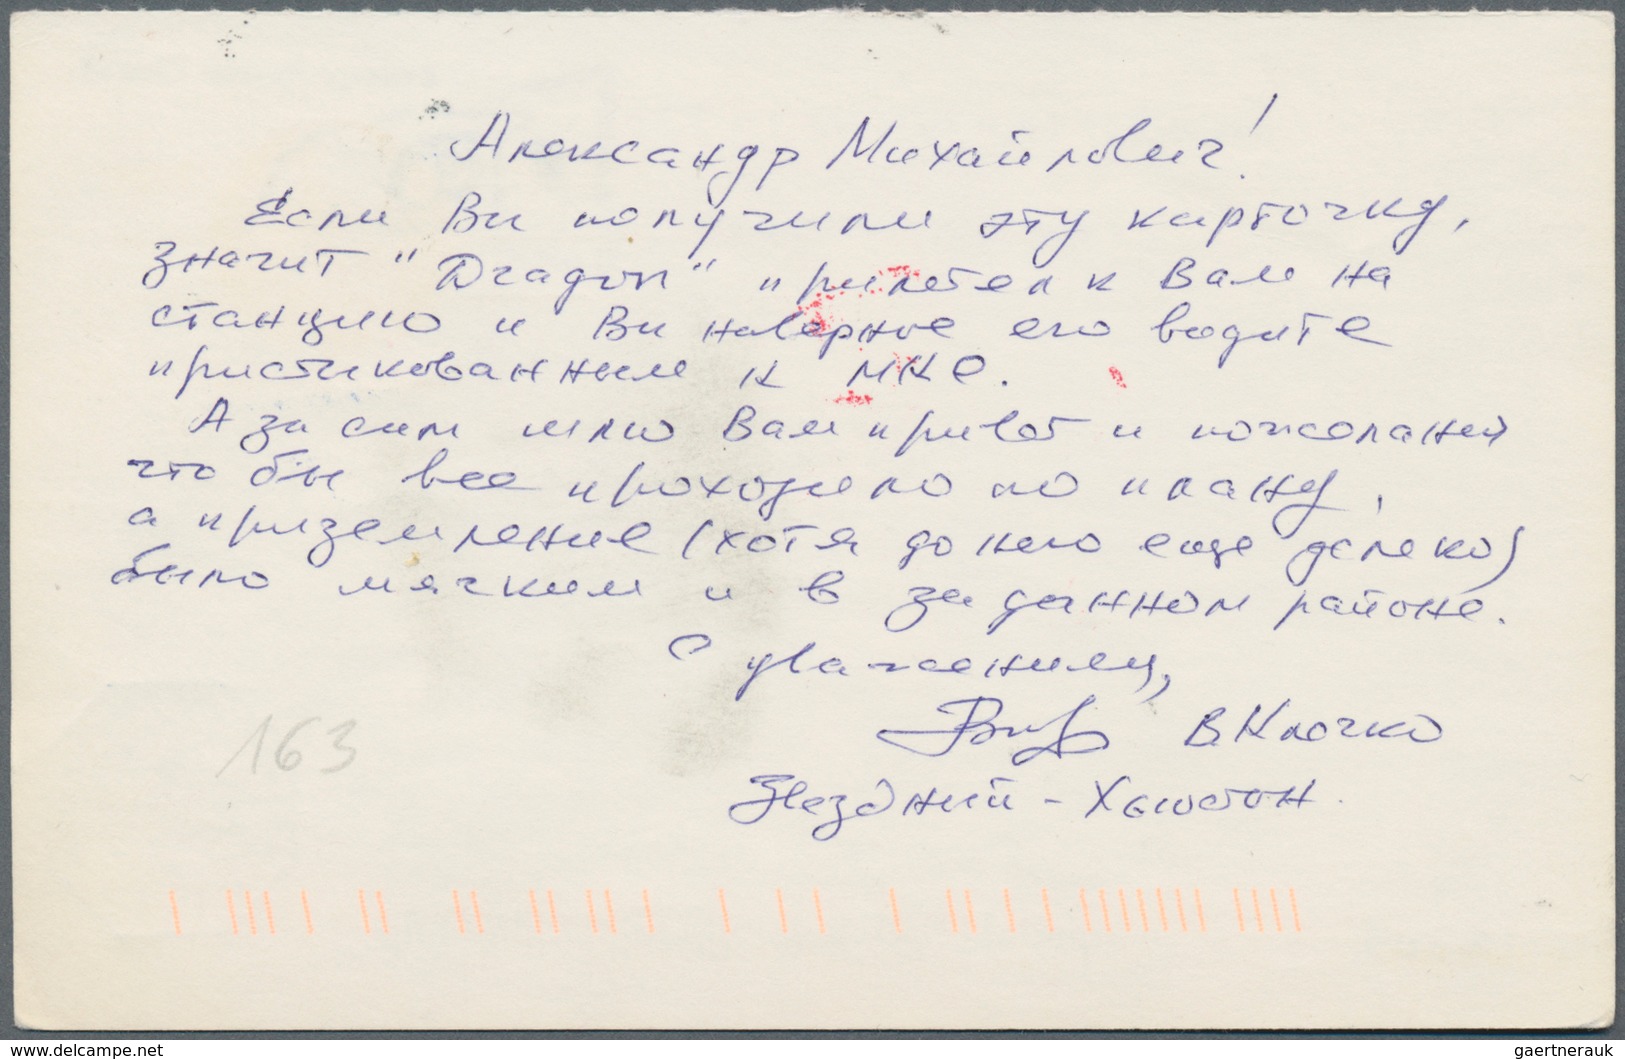 Александр Михайлович!
Если Вы получили эту карточку,
значит "Dragon" прилетел к Вам на
станцию и Вы наверное его видите
пристыкованным к МКС.
А за сим шлю Вам привет и пожелания
что бы все проходило по плану,
а приземление (хотя до него еще далеко)
было мягким и в заданном районе.
С уважением,
В. Клочко
Звездный - Хьюстон.
163
www.delcampe.net
gaertnerauk